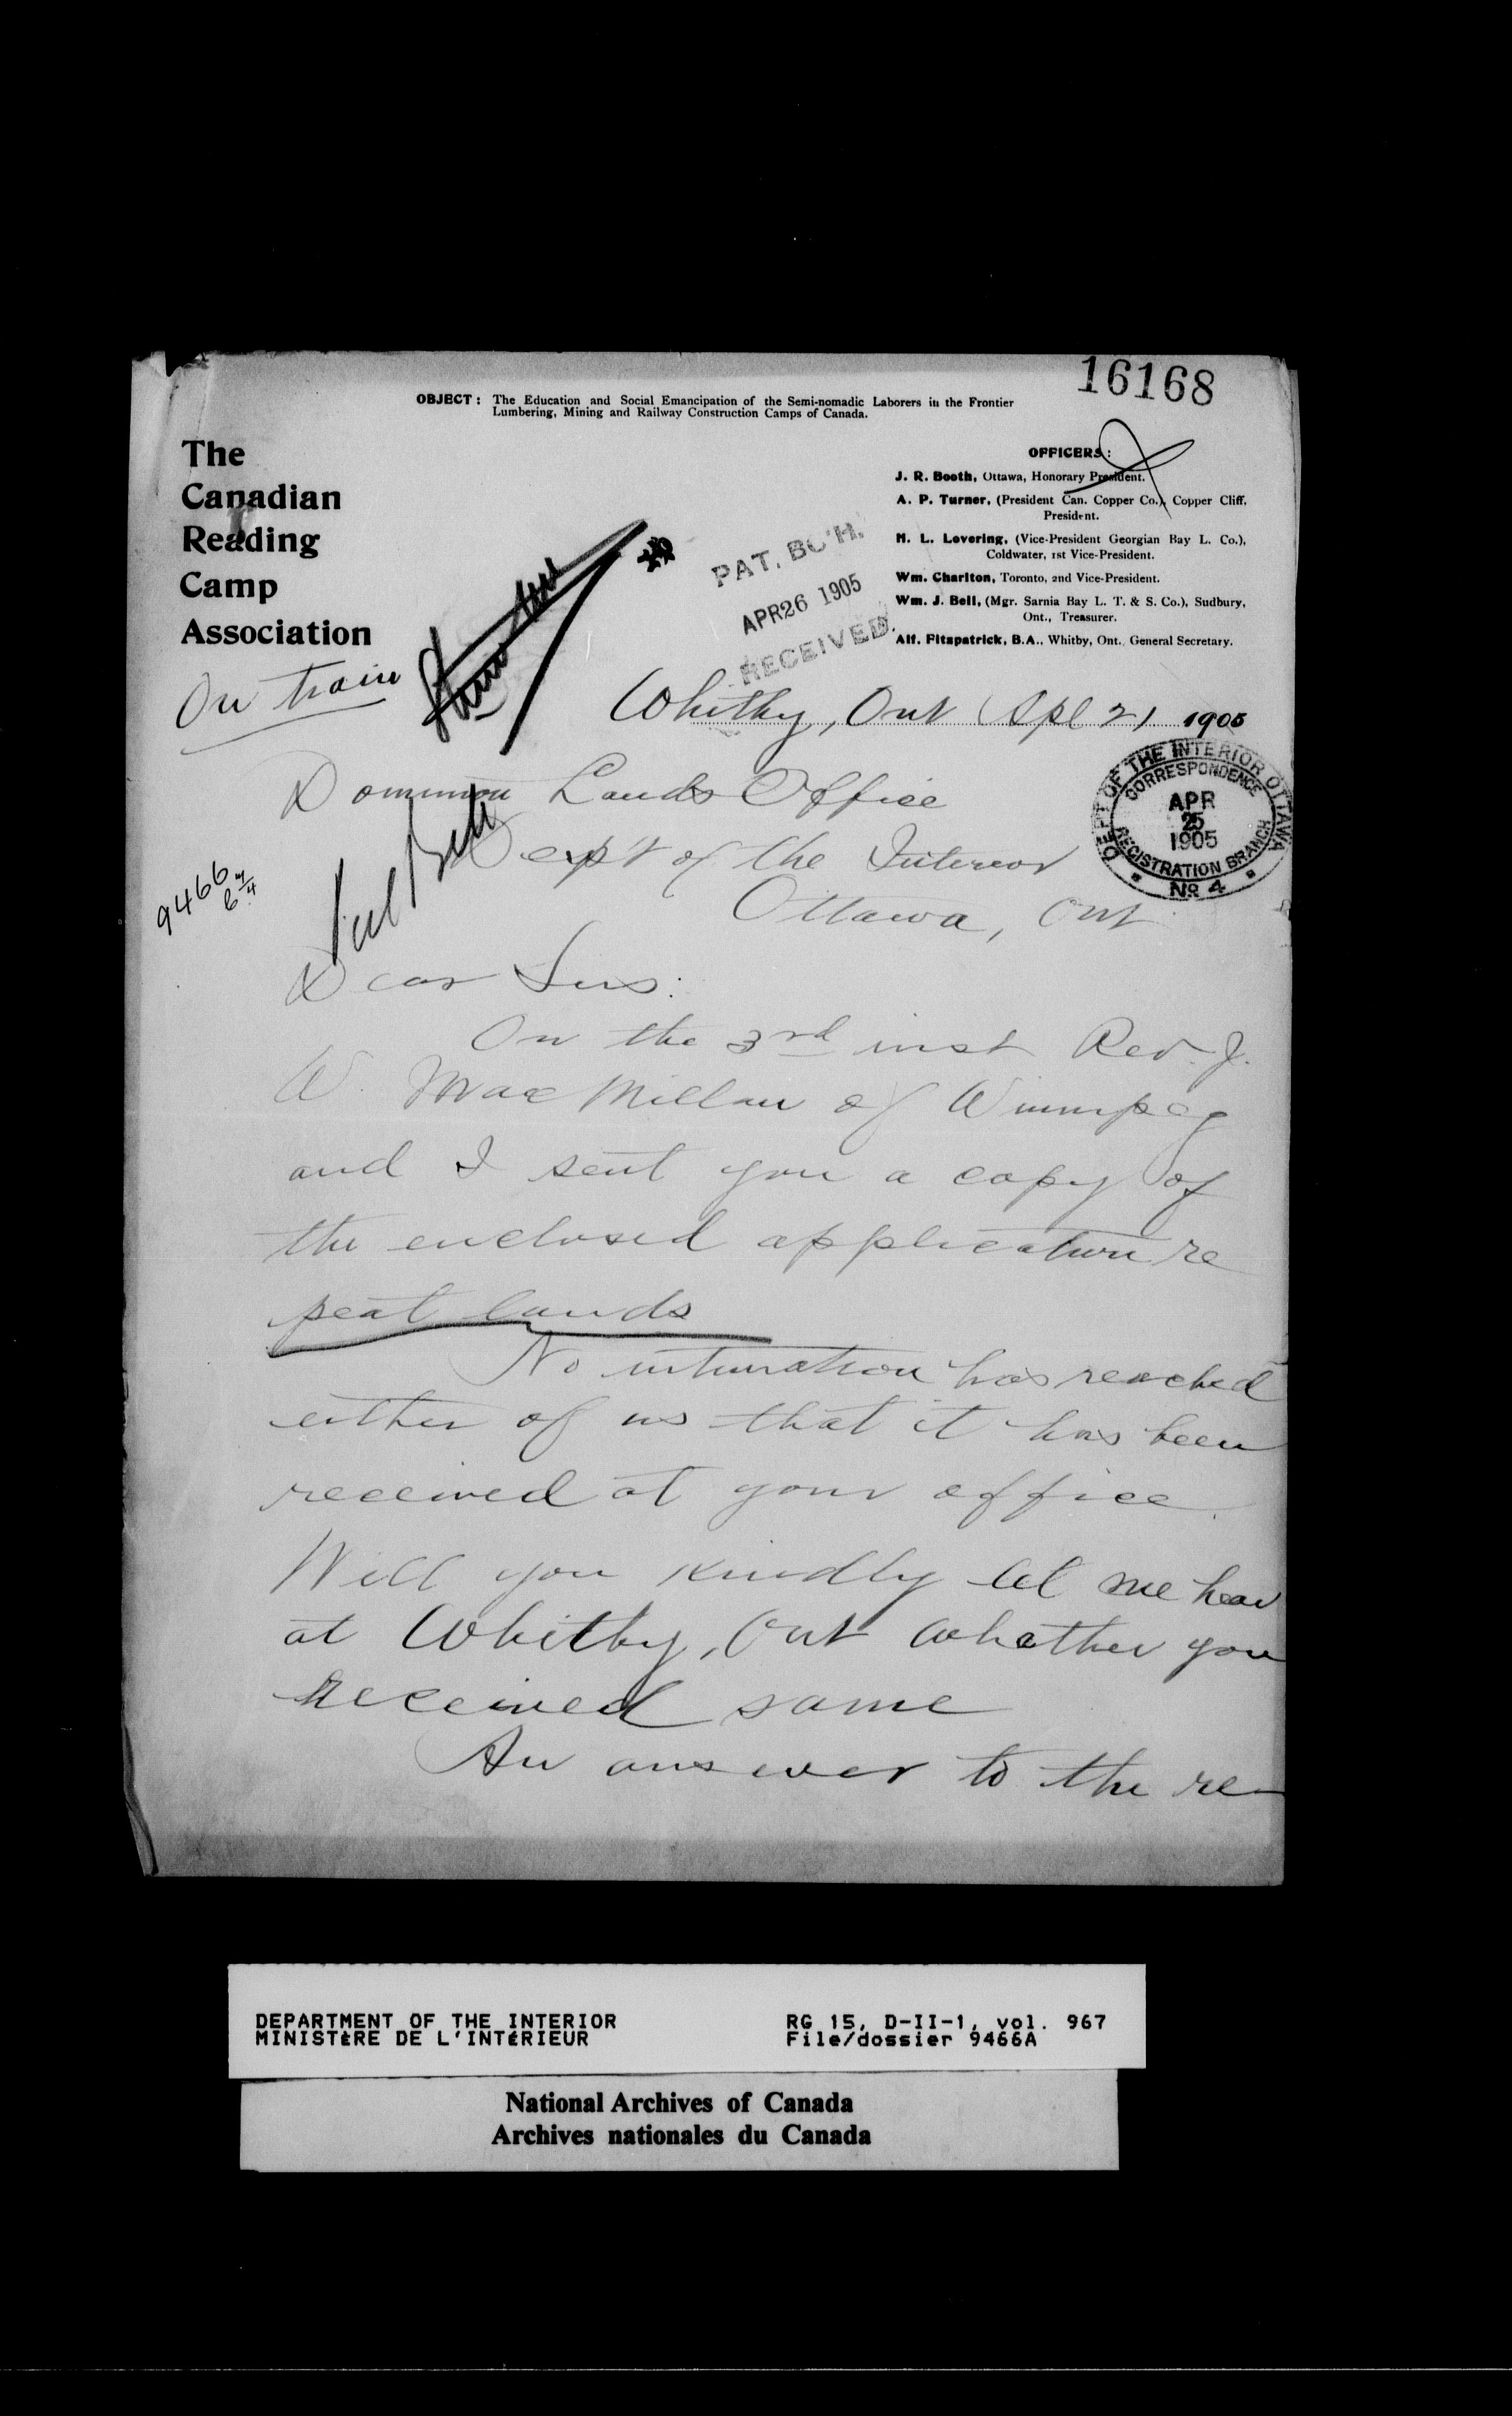 16168
OBJECT: The Education and Social Emancipation of the Semi-nomadic Laborers in the Frontier
Lumbering, Mining and Railway Construction Camps of Canada.
The
Canadian
Reading
Camp
Association
OFFICERS:
J. R. Booth, Ottawa, Honorary President.
A. P. Turner, (President Can. Copper Co.), Copper Cliff,
President.
H. L. Lovering, (Vice-President Georgian Bay L. Co.),
Coldwater, 1st Vice-President.
Wm. Charlton, Toronto, 2nd Vice-President.
Wm. J. Bell, (Mgr. Sarnia Bay L. T. & S. Co.), Sudbury,
Ont., Treasurer.
Alf. Fitzpatrick, B.A., Whitby, Ont. General Secretary.
PAT. BCH.
APR 26 1905
RECEIVED.
On train
Whitby, Ont Apl 21 1905
DEPT OF THE INTERIOR OTTAWA
CORRESPONDENCE
APR
25
1905
REGISTRATION BRANCH
No 4
Dominion Lands Office
Dep't of the Interior
Ottawa, Ont
9466
Dear Sirs:
On the 3rd inst Rev. J.
W. MacMillan of Winnipeg
and I sent you a copy of
the enclosed application re
peat lands
No intimation has reached
either of us that it has been
received at your office.
Will you kindly let me hear
at Whitby, Ont whether you
received same
An answer to the re-
DEPARTMENT OF THE INTERIOR
MINISTÈRE DE L'INTÉRIEUR
RG 15, D-II-1, vol. 967
File/dossier 9466A
National Archives of Canada
Archives nationales du Canada